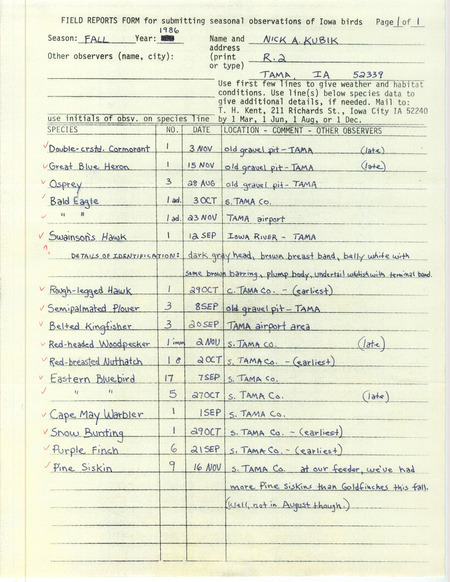 FIELD REPORTS FORM for submitting seasonal observations of Iowa birds Page 1 of 1
1986
Season: FALL Year: Name and NICK A. KUBIK
address
Other observers (name, city): (print R.2
or type)
TAMA, IA 52339
Use first few lines to give weather and habitat
conditions. Use line(s) below species data to
give additional details, if needed. Mail to:
T. H. Kent, 211 Richards St., Iowa City IA 52240
use initials of obsv. on species line by 1 Mar, 1 Jun, 1 Aug, or 1 Dec.
SPECIES NO. DATE LOCATION - COMMENT - OTHER OBSERVERS
✓ Double-crstd. Cormorant 1 3 NOV old gravel pit - TAMA (late)
✓ Great Blue Heron 1 15 NOV old gravel pit - TAMA (late)
✓ Osprey 3 28 AUG old gravel pit - TAMA
✓ Bald Eagle 1 ad. 3 OCT S. TAMA Co.
✓ " " 1 ad. 23 NOV TAMA airport
✓ Swainson's Hawk 1 12 SEP IOWA RIVER - TAMA
DETAILS OF IDENTIFICATION: dark gray head, brown breast band, belly white with
some brown barring, plump body, undertail whitish with terminal band.
✓ Rough-legged Hawk 1 29 OCT C. TAMA Co. - (earliest)
✓ Semipalmated Plover 3 8 SEP old gravel pit - TAMA
✓ Belted Kingfisher 3 20 SEP TAMA airport area
✓ Red-headed Woodpecker 1 imm 2 NOV S. TAMA Co. (late)
✓ Red-breasted Nuthatch 1 2 OCT S. TAMA Co. - (earliest)
✓ Eastern Bluebird 17 7 SEP S. TAMA Co.
✓ " " 5 27 OCT S. TAMA Co. (late)
✓ Cape May Warbler 1 1 SEP S. TAMA Co.
✓ Snow Bunting 1 29 OCT S. TAMA Co. - (earliest)
✓ Purple Finch 6 21 SEP S. TAMA Co. - (earliest)
✓ Pine Siskin 9 16 NOV S. TAMA Co. at our feeder, we've had
more Pine Siskins than Goldfinches this fall.
(Well, not in August though.)